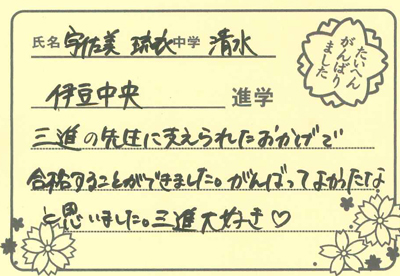 氏名 宇佐美 琉衣 中学 清水
たいへん
がんばり
ました
伊豆中央 進学
三進の先生に支えられたおかげで
合格することができました。がんばってよかったな
と思いました。三進大好き♡